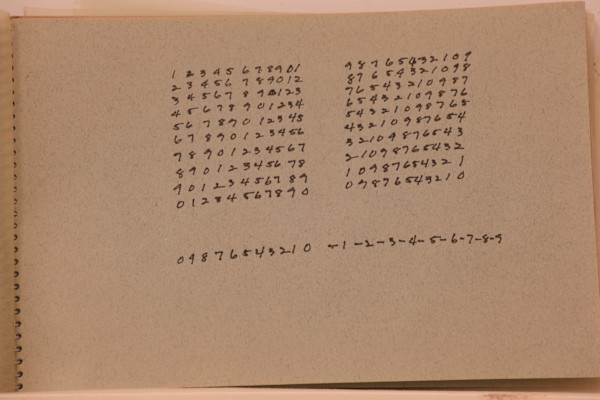 1 2 3 4 5 6 7 8 9 0 1
2 3 4 5 6 7 8 9 0 1 2
3 4 5 6 7 8 9 0 1 2 3
4 5 6 7 8 9 0 1 2 3 4
5 6 7 8 9 0 1 2 3 4 5
6 7 8 9 0 1 2 3 4 5 6
7 8 9 0 1 2 3 4 5 6 7
8 9 0 1 2 3 4 5 6 7 8
9 0 1 2 3 4 5 6 7 8 9
0 1 2 3 4 5 6 7 8 9 0
9 8 7 6 5 4 3 2 1 0 9
8 7 6 5 4 3 2 1 0 9 8
7 6 5 4 3 2 1 0 9 8 7
6 5 4 3 2 1 0 9 8 7 6
5 4 3 2 1 0 9 8 7 6 5
4 3 2 1 0 9 8 7 6 5 4
3 2 1 0 9 8 7 6 5 4 3
2 1 0 9 8 7 6 5 4 3 2
1 0 9 8 7 6 5 4 3 2 1
0 9 8 7 6 5 4 3 2 1 0
0 9 8 7 6 5 4 3 2 1 0 -1-2-3-4-5-6-7-8-9